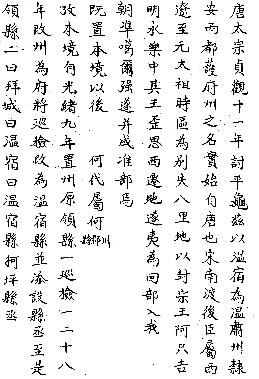 唐太宗貞觀十一年討平龜兹以温宿為温肅州隸
安西都護府州之名實始自唐也宋南渡後臣屬西
遼至元太祖時區為别失八里地以封宗王阿只吉
明永樂中其王歪思西遷地遂夷為回部入我
朝準噶爾强遂并成准部焉
既置本境以後　何代屬何州郡縣
攷本境自光緒九年置州原領縣一巡檢一二十八
年改州為府將巡檢改為温宿縣並添設縣丞至是
領縣二曰拜城曰温宿曰温宿縣柯坪縣丞